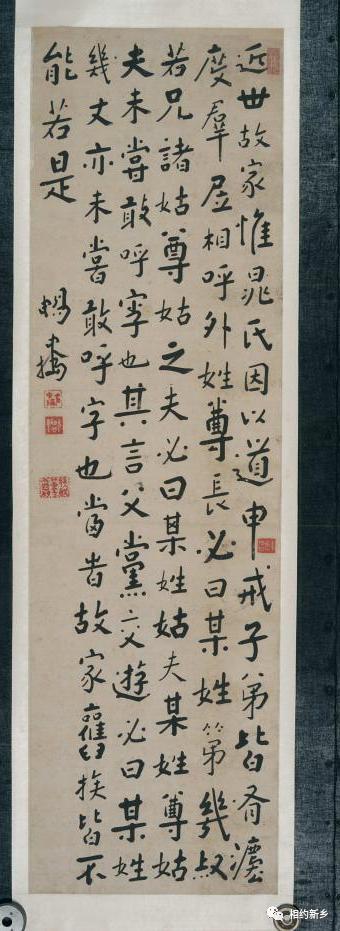 近世故家惟晁氏因以道申戒子弟皆有灋
度羣居相呼外姓尊長必曰某姓第幾叔
若兄諸姑尊姑之夫必曰某姓姑夫某姓尊姑
夫未嘗敢呼字也其言父黨交遊必曰某姓
幾丈亦未嘗敢呼字也當旹故家舊族皆不
能若是
相约新乡